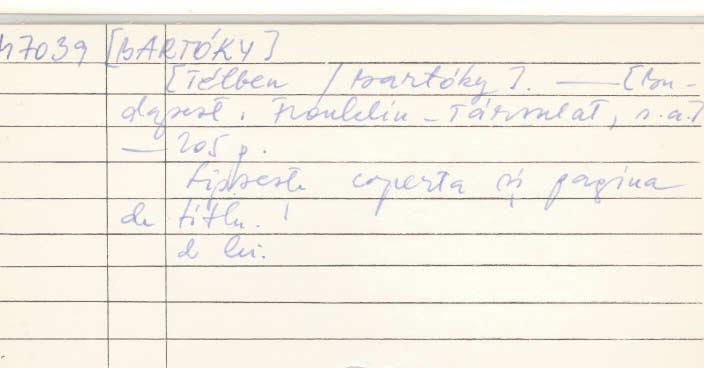 47039 [BARTÓKY]
[Télben / Bartóky]. — [Bu-
dapest, Franklin-Társulat, s.a.]
— 205 p.
Lipsește coperta și pagina
de titlu.
lei.